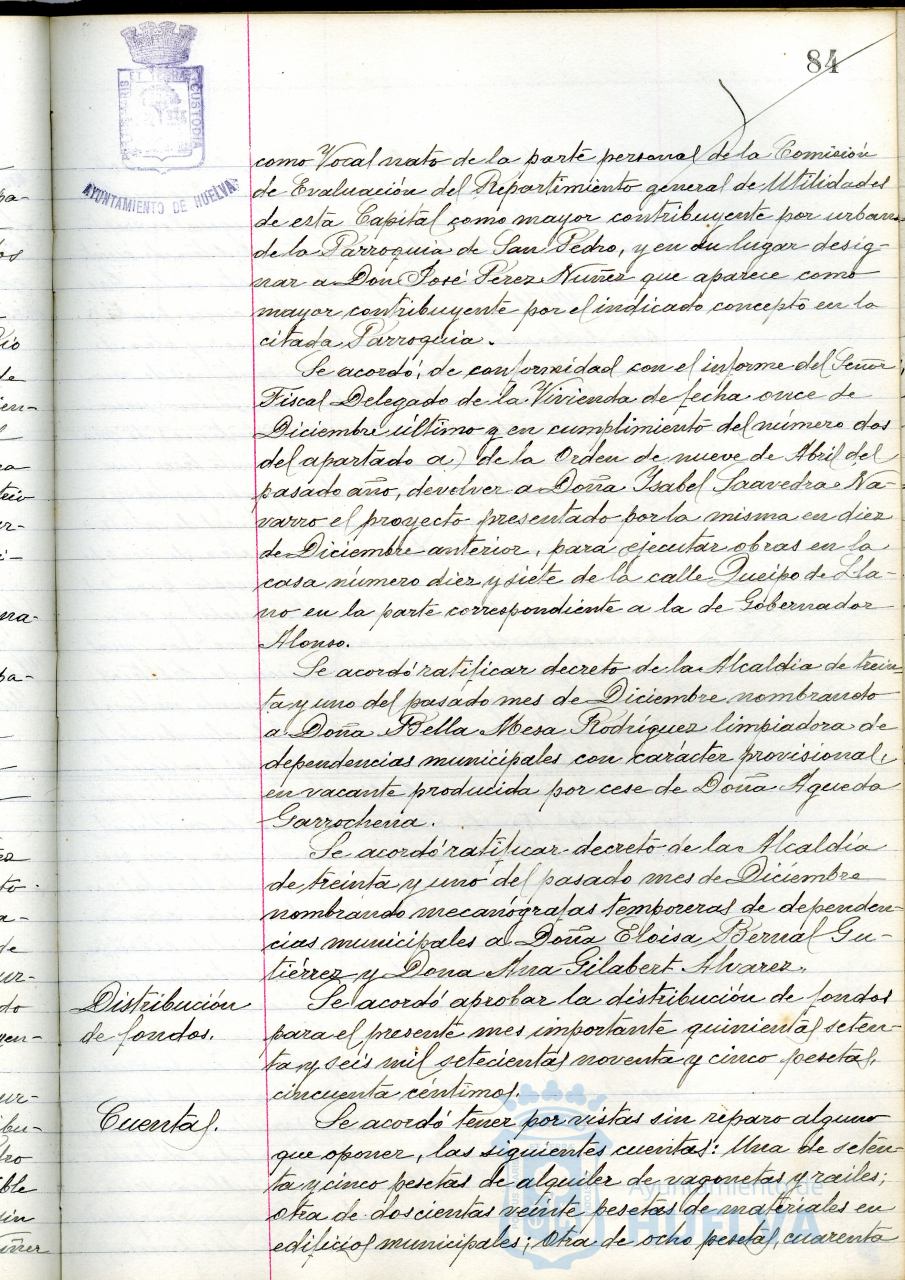 84
PORTUS MARIS ET TERRAE CUSTODIA
AYUNTAMIENTO DE HUELVA
como Vocal nato de la parte personal de la Comisión
de Evaluación del Repartimiento general de Utilidades
de esta Capital como mayor contribuyente por urbana
de la Parroquia de San Pedro, y en su lugar desig-
nar a Don José Pérez Nuñez que aparece como
mayor contribuyente por el indicado concepto en la
citada Parroquia.
Se acordó, de conformidad con el informe del Señor
Fiscal Delegado de la Vivienda de fecha once de
Diciembre último y en cumplimiento del número dos
del apartado a) de la Orden de nueve de Abril del
pasado año, devolver a Doña Isabel Saavedra Na-
varro el proyecto presentado por la misma en diez
de Diciembre anterior, para ejecutar obras en la
casa número diez y siete de la calle Queipo de Lla-
no en la parte correspondiente a la de Gobernador
Alonso.
Se acordó ratificar decreto de la Alcaldía de trein-
ta y uno del pasado mes de Diciembre nombrando
a Doña Bella Mesa Rodríguez limpiadora de
dependencias municipales con carácter provisional,
en vacante producida por cese de Doña Agueda
Garrochena.
Se acordó ratificar decreto de la Alcaldía
de treinta y uno del pasado mes de Diciembre
nombrando mecanógrafas temporeras de dependen-
cias municipales a Doña Eloisa Bernal Gu-
tiérrez y Dona Ana Gilabert Alvarez.
Distribución
de fondos.
Se acordó aprobar la distribución de fondos
para el presente mes importante quinientas seten-
ta y seis mil setecientas noventa y cinco pesetas,
cincuenta céntimos.
Cuentas.
Se acordó tener por vistas sin reparo alguno
que oponer, las siguientes cuentas: Una de seten-
ta y cinco pesetas de alquiler de vagonetas y railes;
otra de doscientas veinte pesetas de materiales en
edificios municipales; otra de ocho pesetas, cuarenta
Ayuntamiento de
HUELVA